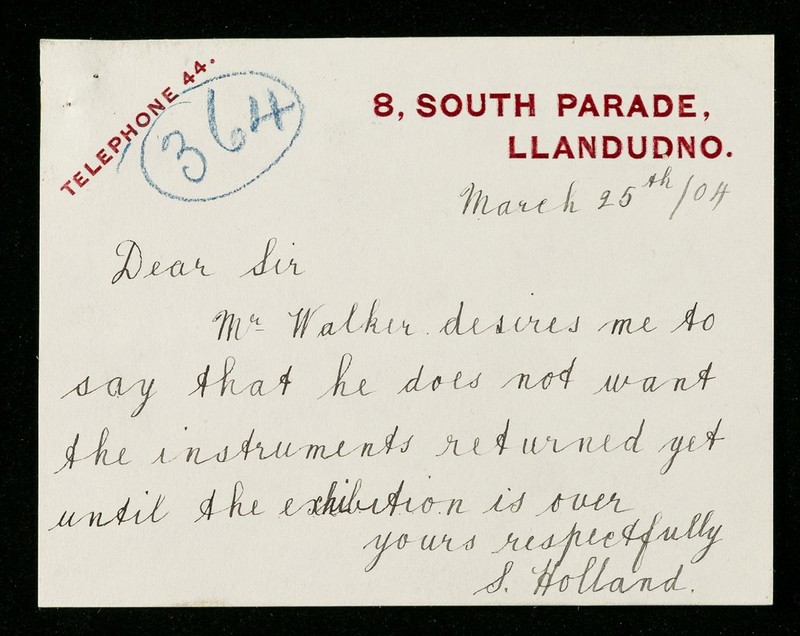 TELEPHONE 44.
364
8, SOUTH PARADE,
LLANDUDNO.
March 25th/04
Dear Sir
Mr Walker desires me to
say that he does not want
the instruments returned yet
until the exhibition is over
yours respectfully
S. Holland.